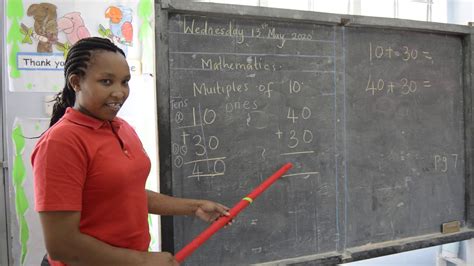 Thank you
Wednesday 13th May 2020
Mathematics.
Multiples of 10
Tens ones
10 40
+ 30 + 30
40
10 + 30 =
40 + 30 =
pg 7